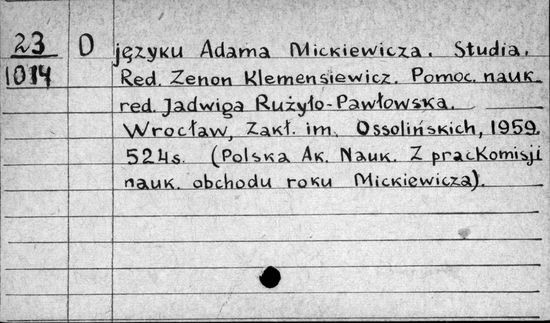 23
1014
O języku Adama Mickiewicza. Studia.
Red. Zenon Klemensiewicz. Pomoc. nauk.
red. Jadwiga Rużyło-Pawłowska.
Wrocław, Zakł. im. Ossolińskich, 1959.
524s. (Polska Ak. Nauk. Z prac Komisji
nauk. obchodu roku Mickiewicza).